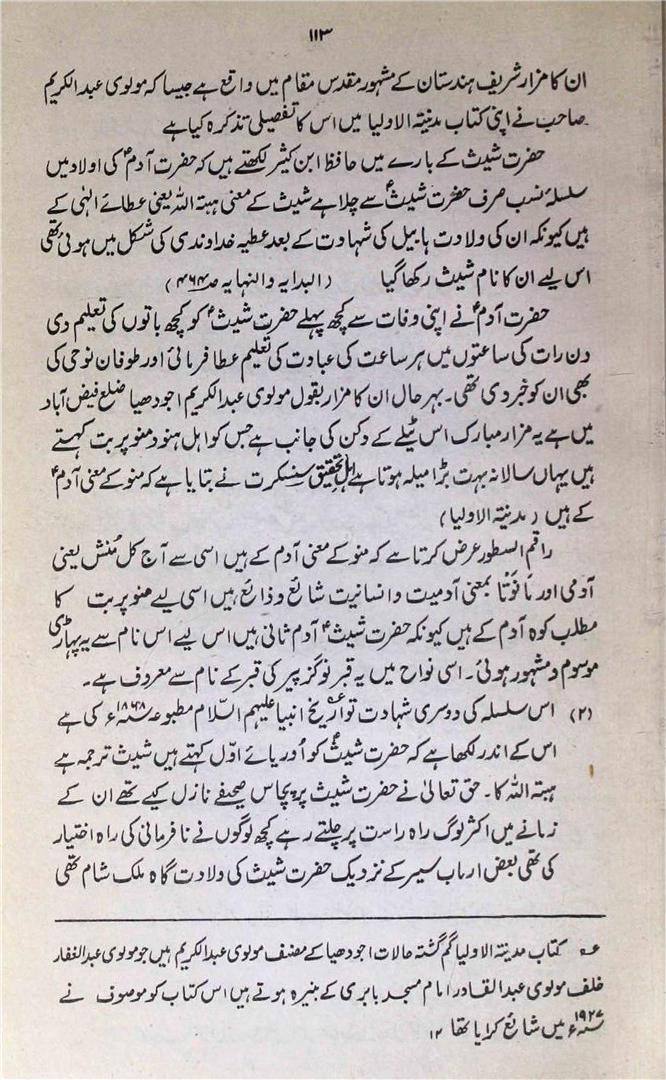 ۱۱۳
ان کا مزار شریف ہندستان کے مشہور مقدس مقام میں واقع ہے جیسا کہ مولوی عبدالکریم
صاحب نے اپنی کتاب مدینۃ الاولیا میں اس کا تفصیلی تذکرہ کیا ہے
حضرت شیثؑ کے بارے میں حافظ ابن کثیر لکھتے ہیں کہ حضرت آدمؑ کی اولاد میں
سلسلۂ نسب صرف حضرت شیثؑ سے چلا ہے شیث کے معنی ہبۃ اللہ یعنی عطائے الٰہی کے
ہیں کیونکہ ان کی ولادت ہابیل کی شہادت کے بعد عطیہ خداوندی کی شکل میں ہوئی تھی
اس لیے ان کا نام شیث رکھا گیا (البدایہ والنہایہ ص۴۶۴)
حضرت آدمؑ نے اپنی وفات سے کچھ پہلے حضرت شیثؑ کو کچھ باتوں کی تعلیم دی
دن رات کی ساعتوں میں ہر ساعت کی عبادت کی تعلیم عطا فرمائی اور طوفان نوحی کی
بھی ان کو خبر دی تھی۔ بہر حال ان کا مزار بقول مولوی عبدالکریم اجودھیا ضلع فیض آباد
میں ہے یہ مزار مبارک اس ٹیلے کے دکن کی جانب ہے جس کو اہل ہنود منو پربت کہتے
ہیں یہاں سالانہ بہت بڑا میلہ ہوتا ہے اہل تحقیق سنسکرت نے بتایا ہے کہ منو کے معنی آدمؑ
کے ہیں (مدینۃ الاولیا)
راقم السطور عرض کرتا ہے کہ منو کے معنی آدم کے ہیں اسی سے آج کل مُنش یعنی
آدمی اور مانوتا بمعنی آدمیت وانسانیت شائع وذائع ہیں اسی لیے منو پربت کا
مطلب کوہ آدم کے ہیں کیونکہ حضرت شیثؑ آدم ثانی ہیں اس لیے اس نام سے یہ پہاڑی
موسوم ومشہور ہوئی۔ اسی نواح میں یہ قبر نوگز پیر کی قبر کے نام سے معروف ہے۔
(۲) اس سلسلہ کی دوسری شہادت تواریخ انبیا علیہم السّلام مطبوعہ ۱۸۶۸ء کی ہے
اس کے اندر لکھا ہے کہ حضرت شیثؑ کو اُوریائے اوّل کہتے ہیں شیث ترجمہ ہے
ہبۃ اللہ کا۔ حق تعالیٰ نے حضرت شیث پر پچاس صحیفے نازل کیے تھے ان کے
زمانے میں اکثر لوگ راہ راست پر چلتے رہے کچھ لوگوں نے نافرمانی کی راہ اختیار
کی تھی بعض ارباب سیر کے نزدیک حضرت شیث کی ولادت گاہ ملک شام تھی
؏ کتاب مدینۃ الاولیا گم گشتہ حالات اجودھیا کے مصنف مولوی عبدالکریم ہیں جو مولوی عبدالغفار
خلف مولوی عبدالقادر امام مسجد بابری کے نبیرہ ہوتے ہیں اس کتاب کو موصوف نے
۱۹۲۷ء میں شائع کرایا تھا ۱۲